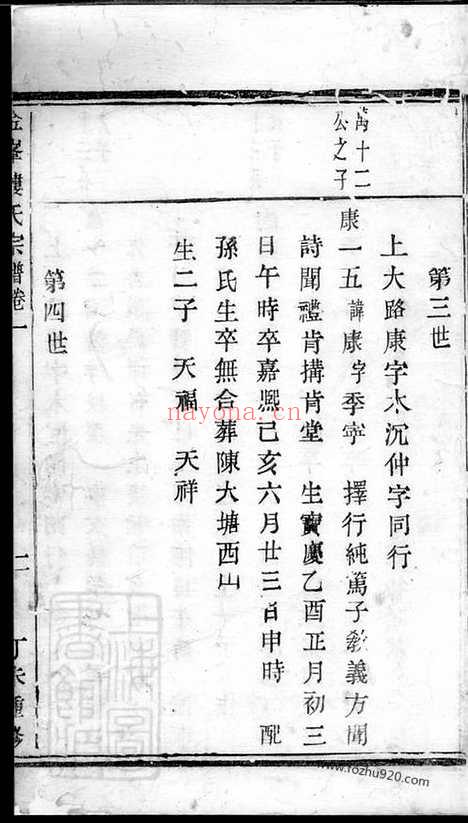 第三世
上大路康字木沉仲字同行
萬十二
公之子
康一五諱康字季寧　擇行純篤子教義方聞
詩聞禮肯搆肯堂　生寶慶乙酉正月初三
日午時卒嘉熙己亥六月廿三日申時　配
孫氏生卒無合葬陳大塘西山
生二子　天福　天祥
第四世
樓氏宗譜卷一
二
丁未重修
nayona.cn
上海圖書館藏
www.fozhu920.com